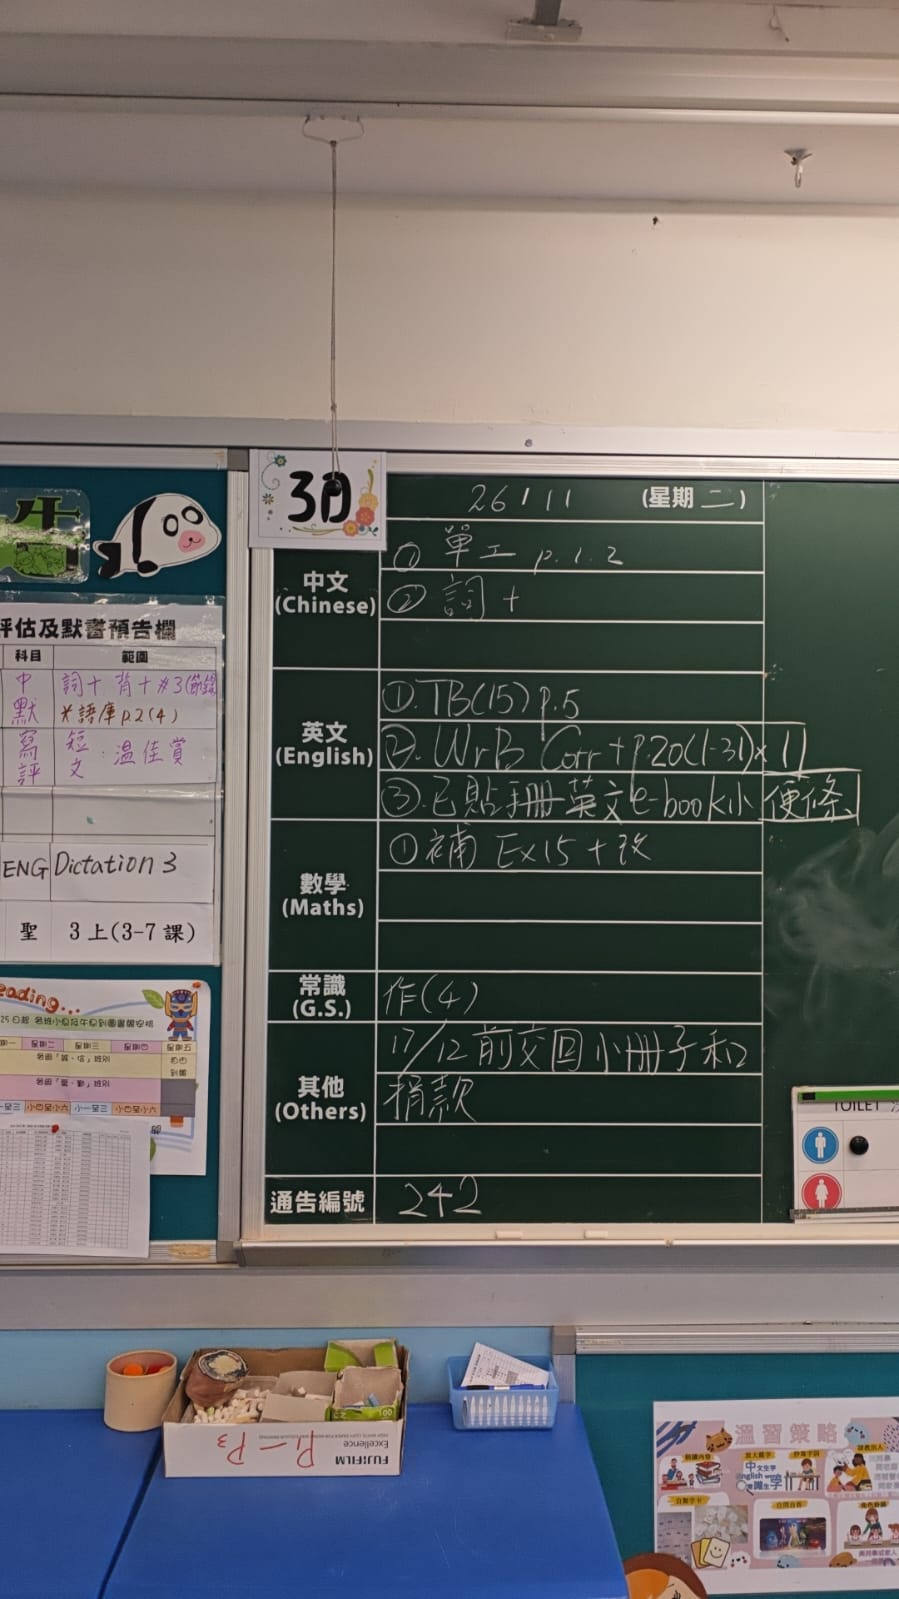 3日
26/11 (星期 二)
中文
(Chinese)
① 單工 p.1.2
② 詞+
英文
(English)
①. TB(15) p.5
②. WrB Corr + p.20(1-31)×1
③. 已貼手冊英文e-book小便條
數學
(Maths)
① 補 Ex15 + 改
常識
(G.S.)
作(4)
其他
(Others)
17/12 前交回小冊子和
捐款
通告編號
242
評估及默書預告欄
科目 範圍
中默 詞十 背十 #3
語庫 p.2(4)
寫評 短文:溫佳賞
ENG Dictation 3
聖 3 上(3-7 課)
eading...
TOILET
FUJIFILM
Excellence
P1 — P3
溫習策略